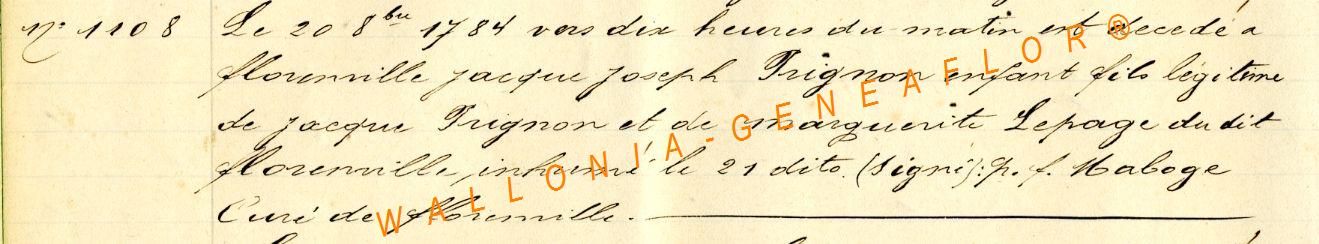 N° 1108 Le 20 8bre 1784 vers dix heures du matin est decedé a
florenville jacque joseph Trignon enfant fils légitime
de jacque Trignon et de marguerite Lepage du dit
florenville, inhumé le 21 dito. (Signé): p. f. Maboge
Curé de florenville.
WALLONIA-GENEAFLOR®